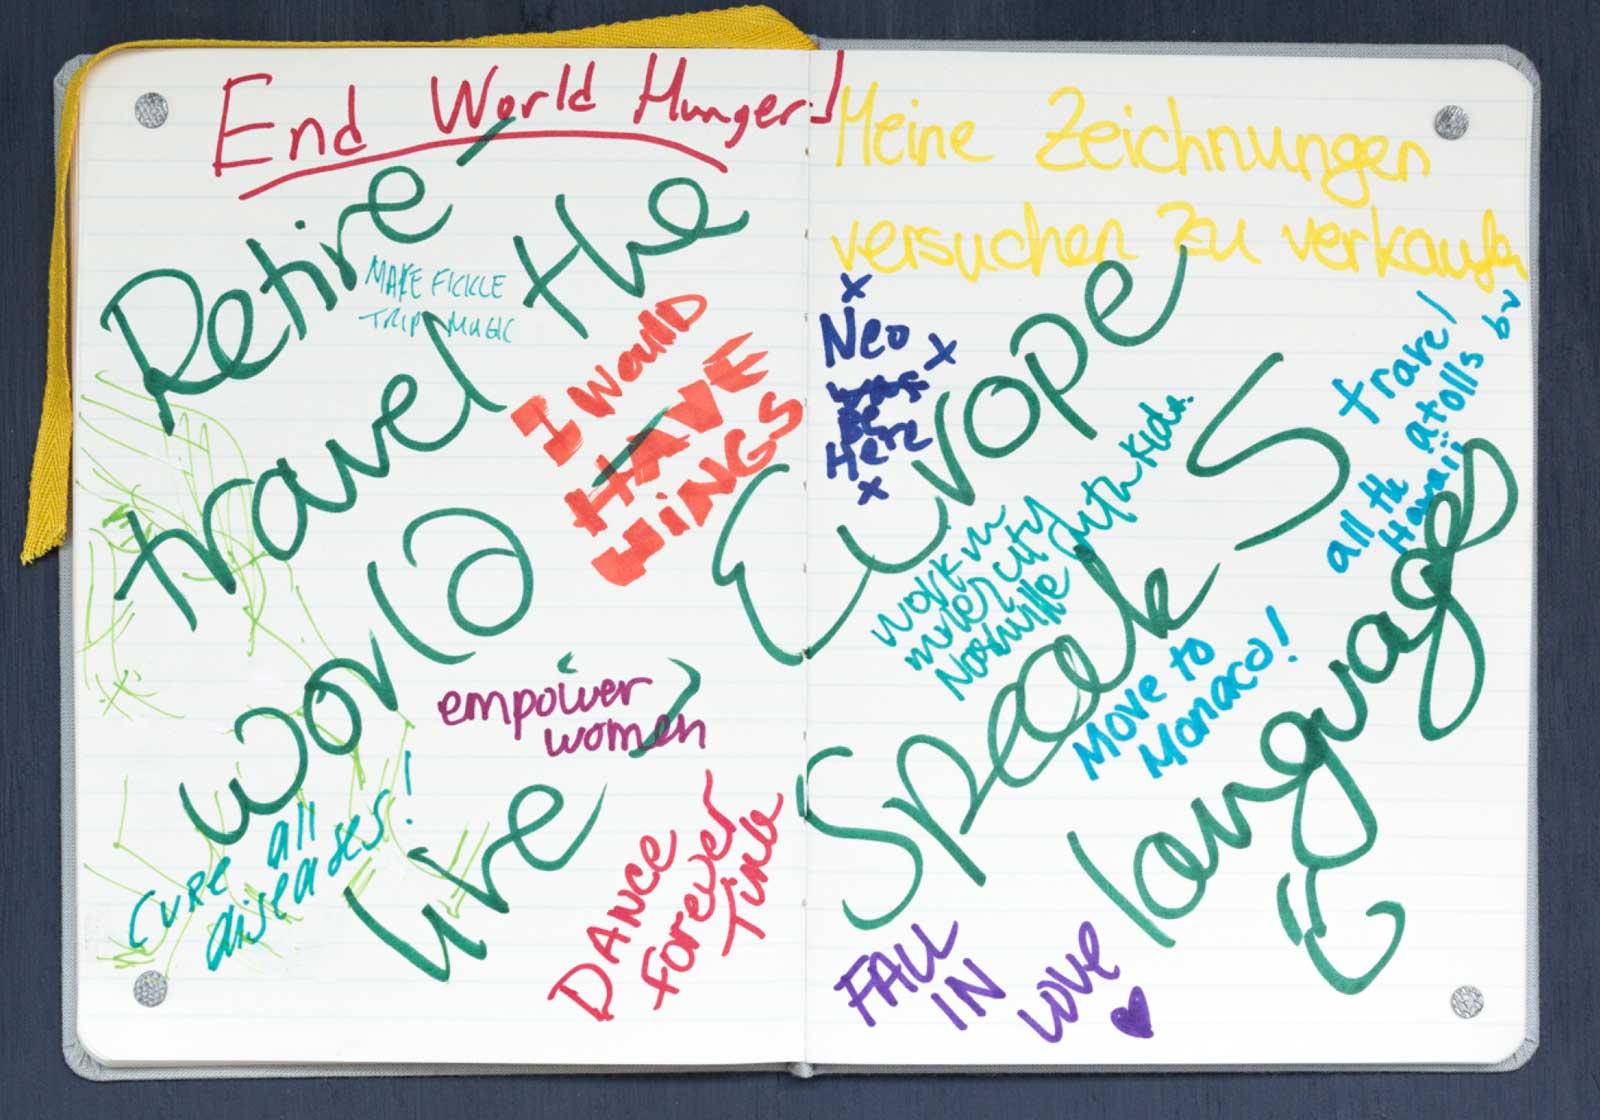 End World Hunger!
Retire
travel the
world
live
Europe
Speak 5
languages
MAKE FICKLE
TRIP MUSIC
I WOULD
HAVE
WINGS
empower
women
Cure all
diseases!
DANCE
Forever
Time
Meine Zeichnungen
versuchen zu verkaufen
Neo
was
Here
work in
inner city
Nashville with kids.
travel
all th atolls
Hawaii
Move to
Monaco!
FALL
IN
LOVE